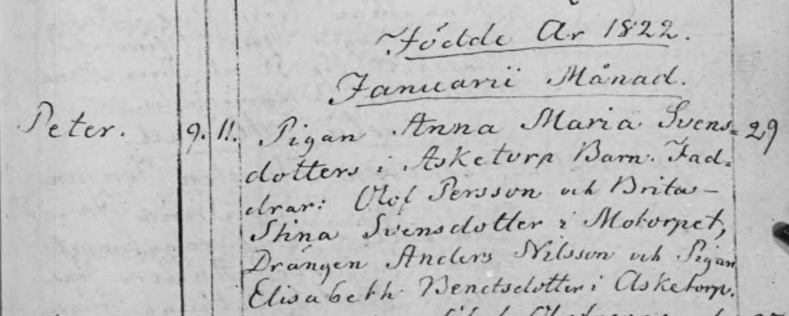 Födde År 1822.
Januarii Månad.
Peter. 9. 11. Pigan Anna Maria Svens= 29
dotters i Asketorp Barn. Fad=
drar: Olof Persson och Brita-
Stina Svensdotter i Motorpet,
Drängen Anders Nilsson och Pigan
Elisabeth Benctsdotter i Asketorp.